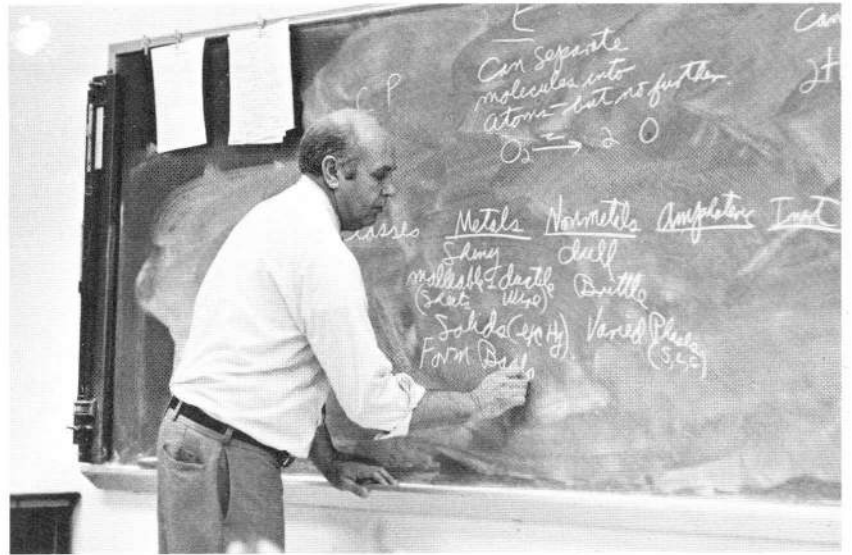 E
Can separate
molecules into
atoms - but no further.
O₂ → 2 O
Can
2H
C P
Metals Nonmetals Amphoteric Inert
Shiny dull
malleable & ductile Brittle
(Sheets Wire)
Solids (exc Hg) Varied Phases
(S, L, G)
Form Bases